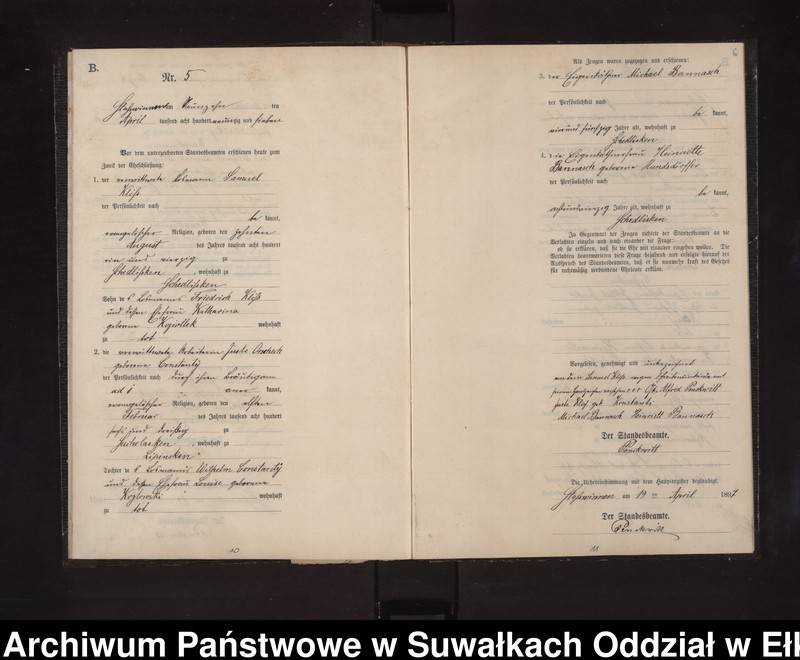 B.
Nr. 5
am Neunzehn ten
April tausend acht hundert neunzig und sieben
Vor dem unterzeichneten Standesbeamten erschienen heute zum
Zweck der Eheschließung:
1. der verwittwete Losmann Samuel
der Persönlichkeit nach
be kannt,
evangelischer Religion, geboren den zehnten
August des Jahres tausend acht hundert
ein und vierzig zu
Schedlisken , wohnhaft zu
Schedlisken
Sohn des Losmanns Friedrich
und dessen Ehefrau Katharina
geborene wohnhaft
zu tot
2. die verwittwete Arbeiterin
geborene Constanty
der Persönlichkeit nach durch ihren Bräutigam
ad 1 aner kannt,
evangelischer Religion, geboren den elften
Februar des Jahres tausend acht hundert
sechs und dreißig zu
, wohnhaft zu
Lipinsken
Tochter des Losmanns Wilhelm Constanty
und dessen Ehefrau Louise geborene
Kozlowski wohnhaft
zu tot
10
6
Als Zeugen waren zugezogen und erschienen:
3. der Eigenkäthner Michael Bannasch
der Persönlichkeit nach
be kannt,
ein und fünfzig Jahre alt, wohnhaft zu
Schedlisken
4. die Eigenkäthnerfrau Henriette
Bannasch geborene
der Persönlichkeit nach
be kannt,
Jahre alt, wohnhaft zu
Schedlisken
In Gegenwart der Zeugen richtete der Standesbeamte an die
Verlobten einzeln und nach einander die Frage:
ob sie erklären, daß sie die Ehe mit einander eingehen wollen. Die
Verlobten beantworteten diese Frage bejahend und erfolgte hierauf der
Ausspruch des Standesbeamten, daß er sie nunmehr kraft des Gesetzes
für rechtmäßig verbundene Eheleute erkläre.
Vorgelesen, genehmigt und unterzeichnet
geb. Konstanti
Michael Bannasch Henriett Bannasch
Der Standesbeamte.
Die Uebereinstimmung mit dem Hauptregister beglaubigt.
am 19 ten April 1897
Der Standesbeamte.
11
Archiwum Państwowe w Suwałkach Oddział w Ełk